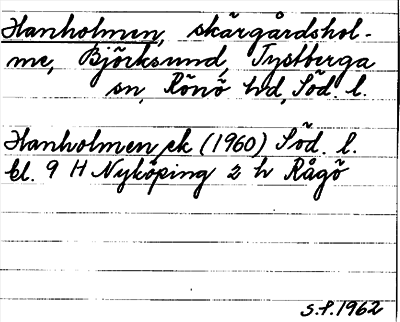 Hanholmen, skärgårdshol-
me, Björksund, Tystberga
sn, Rönö hd, Söd. l.
Hanholmen, ek (1960) Söd. l.
bl. 9 H Nyköping 2 h Rågö
S.P. 1962